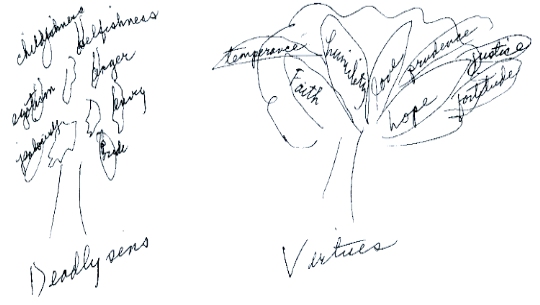 childishness
selfishness
anger
egotism
envy
jealousy
Pride
Deadly sins
temperance
humility
love
prudence
justice
Faith
hope
fortitude
Virtues